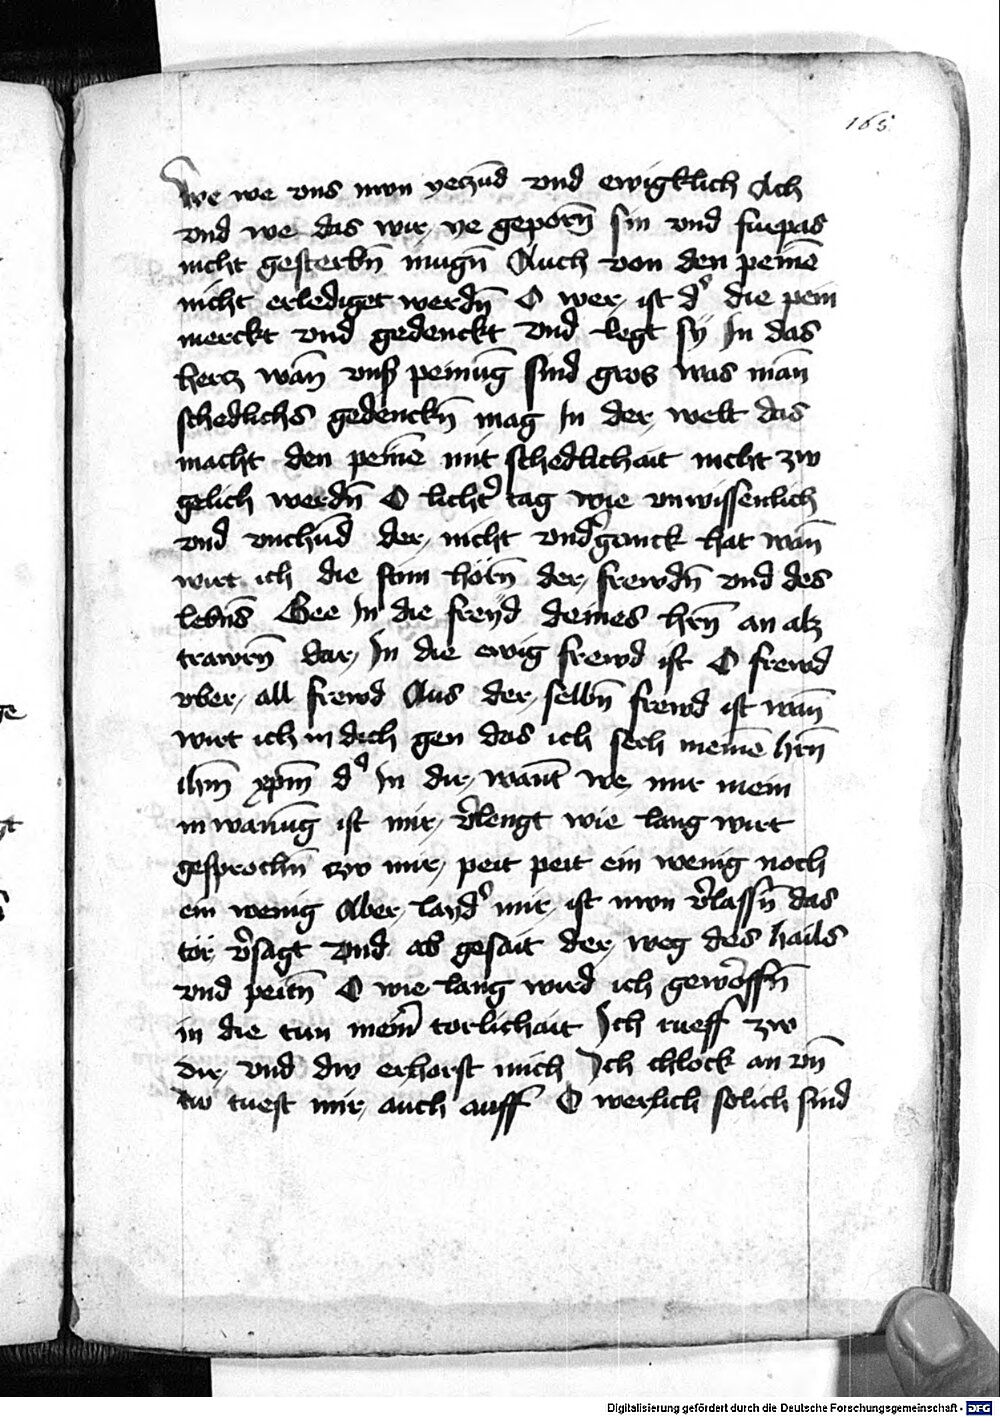 165
We we vns nwn yeczūd vnd ewigklich Ach
vnd we das wir ye geporn̄ sin vnd furpas
nicht gesterbn̄ mugn̄ Auch von den peinē
nicht erlediget werdn̄ O wer ist d̕ die pein
merckt vnd gedenckt vnd legt sÿ In das
hercz wān vnß peinūg sind gros was mān
schedlichs gedenckn̄ mag In der welt das
macht den peinē mit schedlichait nicht zw
gelich werdn̄ O licht̕ tag wie vnwissenlich
vnd vnchūd der nicht vnd̕ganck hat wān
wirt ich die stim hörn̄ der frewdn̄ vnd des
lebn̄s Gee In die freÿd deines hrn̄ an alz
trawrn̄ dar In die ewig frewd ist O frewd
vber all frewd Aus der selbn̄ frewd ist wān
wirt ich in dich gen das ich sech meinē hrn̄
ihm̄ xpm̄ d̕ In dir want̄ we mir mein
inwanūg ist mir v̕lengt wie lang wirt
gesprochn̄ czw mir peit peit ein wenig noch
ein wenig Aber layd̕ mir ist nwn v̕lassn̄ das
tör v̕sagt vnd ab gesait der weg des hails
vnd peitn̄ O wie lang wird ich geworffn̄
in die tun mein̕ torlichait Ich rueff zw
dir vnd dw erhorst mich Ich chlock an vn̄
dw tuest mir auch auff O werlich solich sind
Digitalisierung gefördert durch die Deutsche Forschungsgemeinschaft - DFG